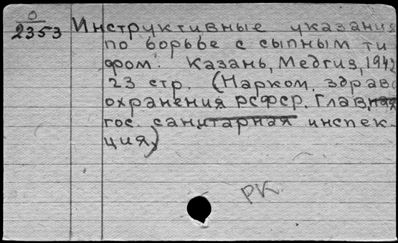 0
2353
Инструктивные указания
по борьбе с сыпным ти
фом. Казань, Медгиз, 1942
23 стр. (Нарком. здрав
охранения РСФСР. Главная
гос. санитарная инспек
ция)
РК